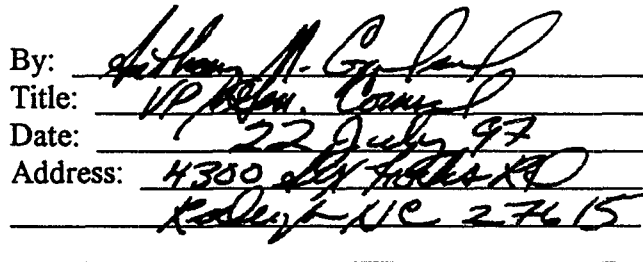 By: Anthony M. Copeland
Title: VP & Gen. Counsel
Date: 22 July 97
Address: 4300 Six Forks RD
Raleigh NC 27615